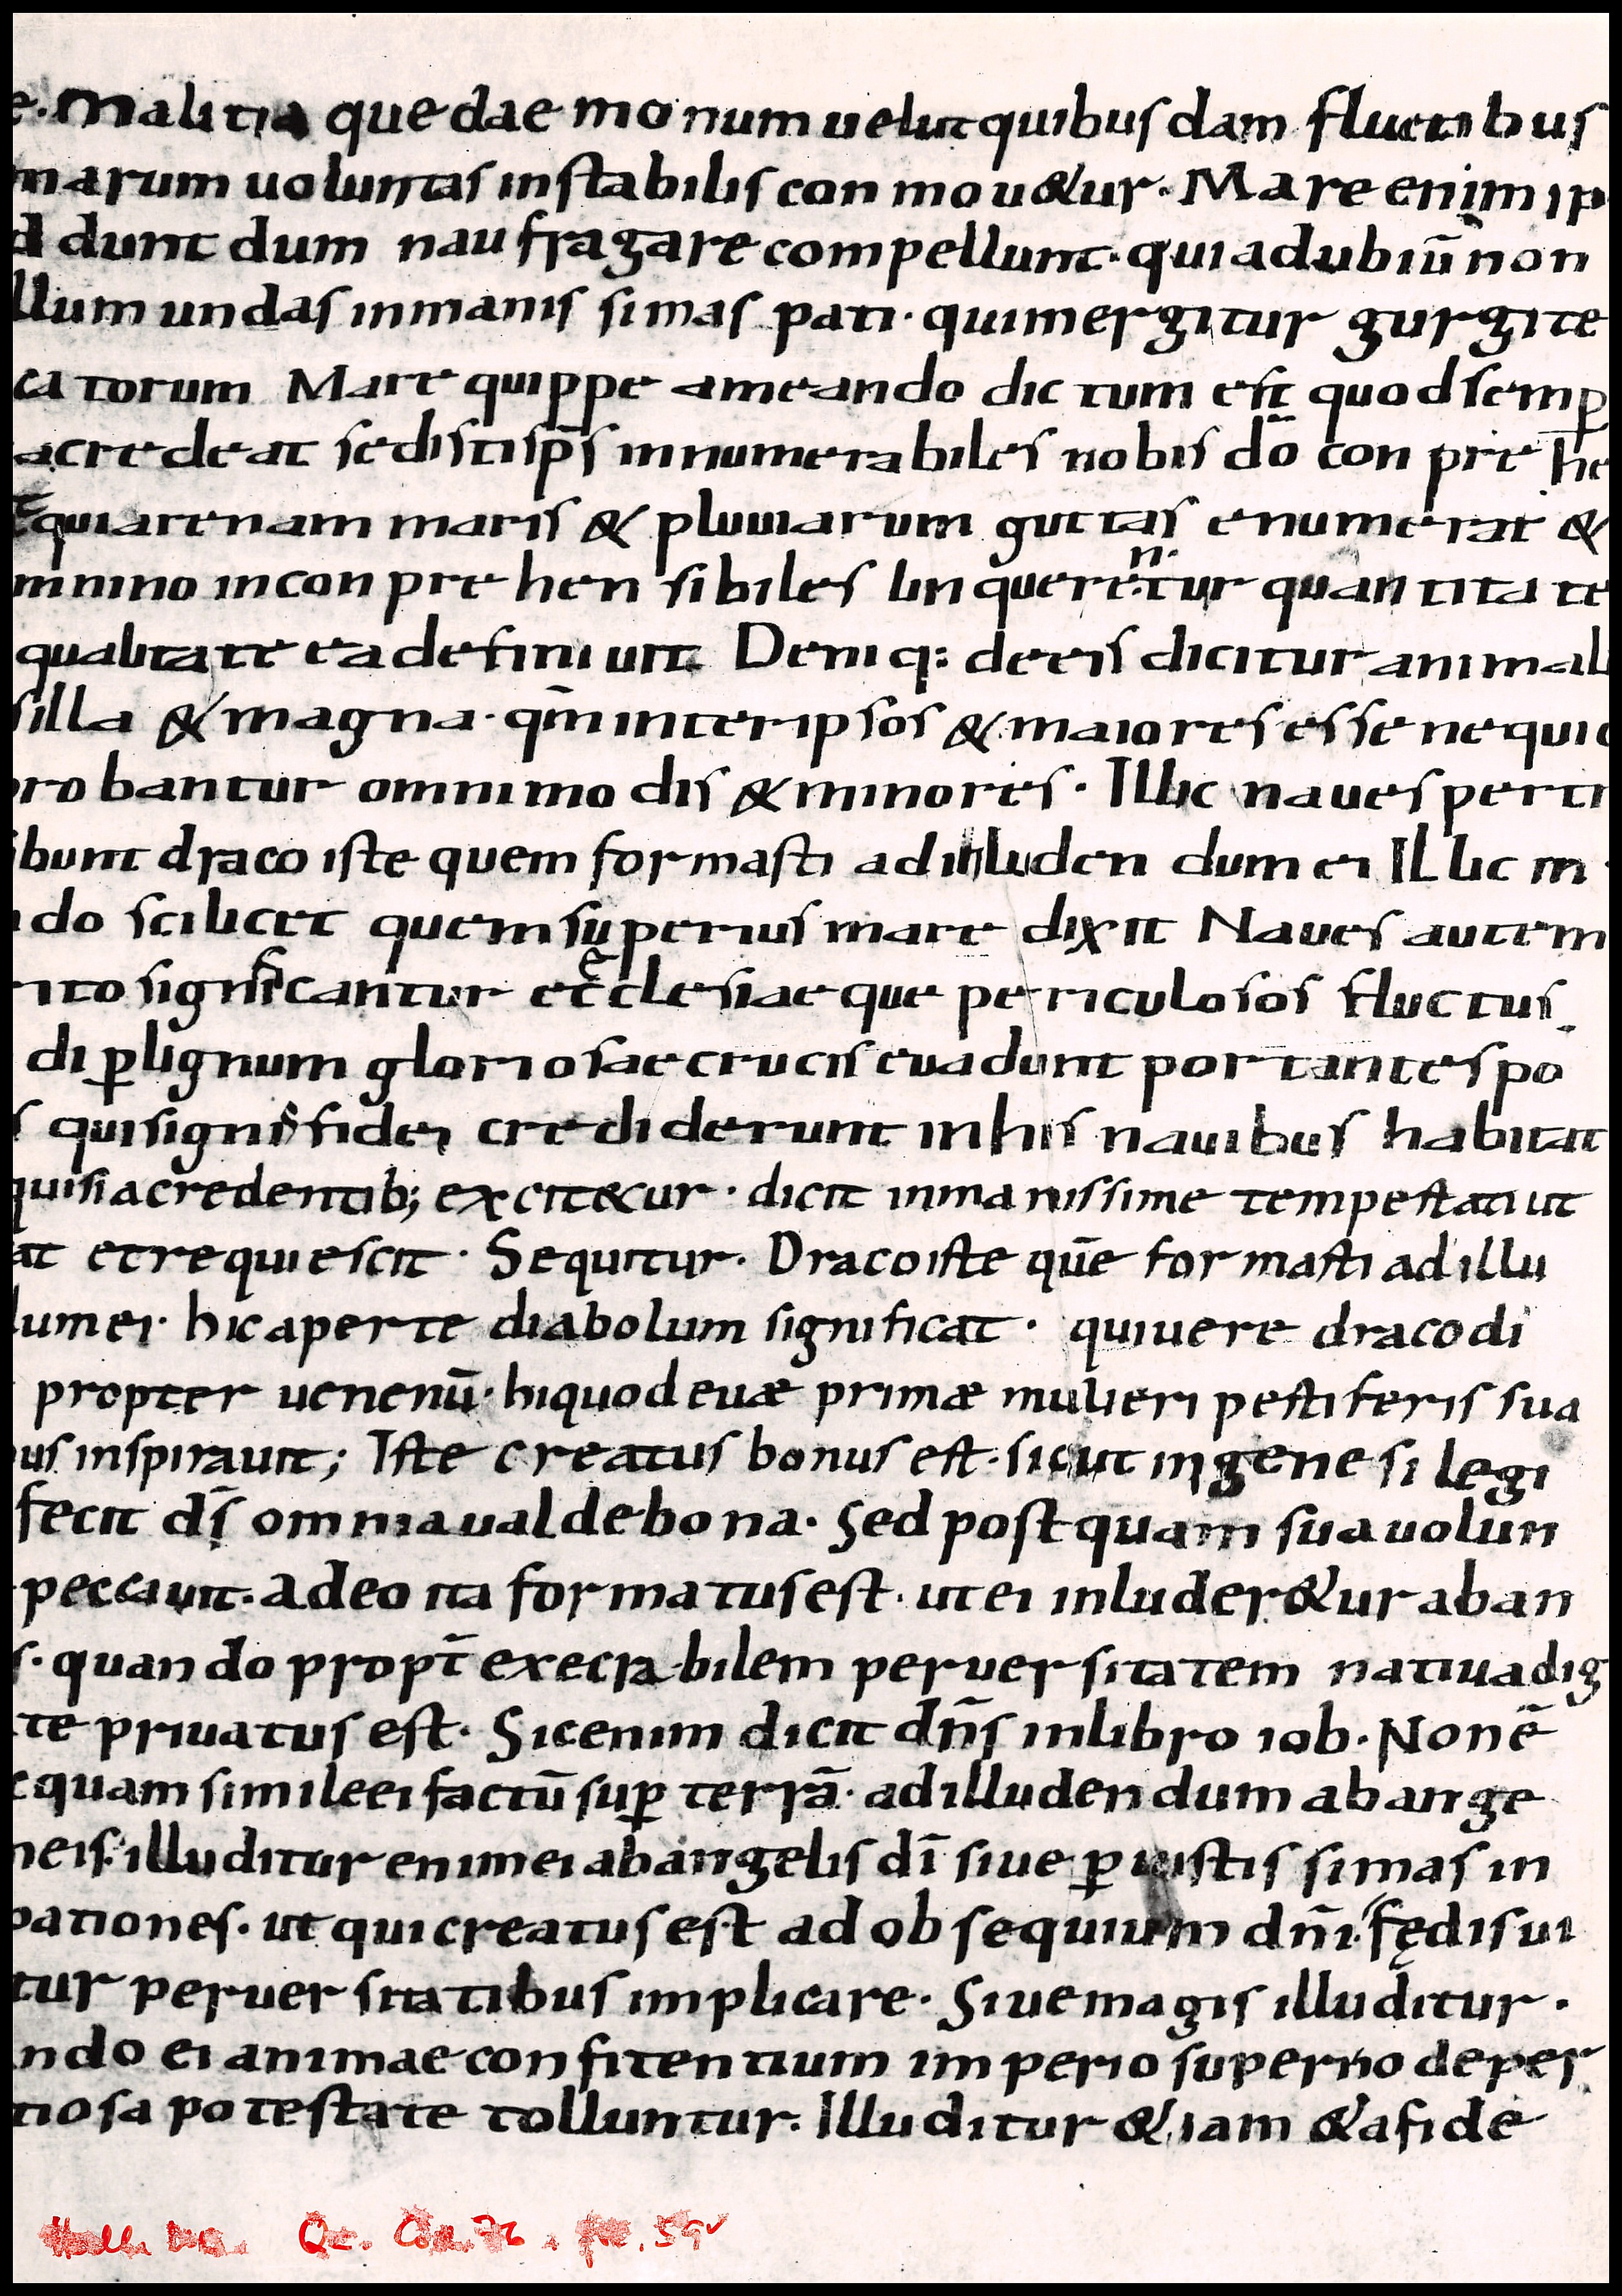 e. Malitia que dae mo num uelut quibus dam fluctibus
marum uoluntas instabilis con mou&ur. Mare enim ip
d dunt dum nau fragare compellunt. quia dubiū non
llum undas inmanis simas pati. quimergitur gurgite
ca torum Mare quippe ameando dic tum est quod semp
acredeat sedistisp̄s innumerabiles nobis dō con pre he
quiarenam maris & pluuiarum guttas enumerat &
mnino incon pre hen sibiles linqueren.tur quan tita te
qualitate ea definiuit Deniq: deeis dicitur animali
silla & magna. qm̄ inter ip sos & maiores esse nequi
pro bantur omnimo dis & minores. Illic naues perti
ibunt draco iste quem formasti ad inluden dum ei ILlic m
do scilicet quem superius mare dixit Naues autem
rito significantur ecclesiae que periculosos fluctus
di plignum gloriosae crucis euadunt portantes po
s quisigni fidei crediderunt inhis nauibus habitat
quisi acredentib; excit&ur. dicit inmanissime tempestati ut
at et requiescit. Sequitur. Dracoiste quē formasti ad illu
dumei. hic aperte diabolum significat. quiuere draco di
propter uenenū. hiquod euæ primæ mulieri pestiferis sua
us inspirauit; Iste creatus bonus est. sicut ingenesi legi
fecit dſ̄ omnia ualde bona. Sed postquam sua uolun
peccauit. adeo ita formatus est. utei inluder&ur aban
s. quando propt̄ execrabilem peruersitatem natiua dig
te priuatus est. Sicenim dicit dn̄s inlibro iob. Nonē
quam simileei factū sup terrā. adilludendum ab ange
neis. illuditur enimei abangelis dī siue p iustis simas in
pationes. ut qui creatus est ad ob sequium dn̄i. fędis ui
tur peruersitatibus implicare. Siue magis illuditur.
ndo ei animae confitentium imperio superno deper
tiosa potestate tolluntur. Illuditur &iam &afide
Qu. Cod. 76 . fol. 59v